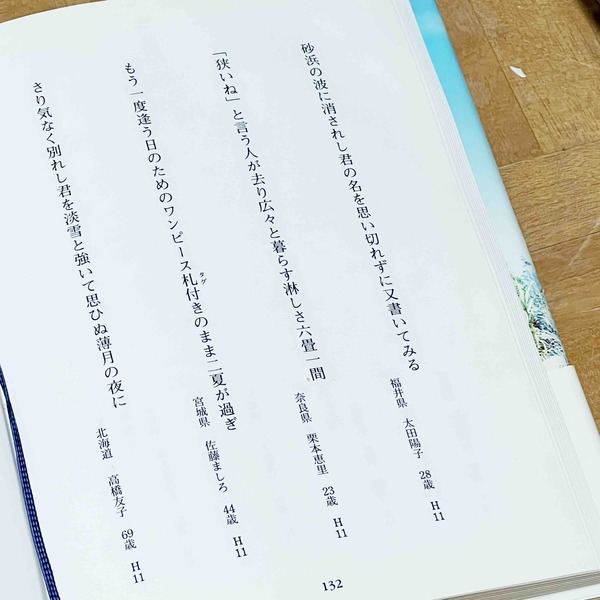 砂浜の波に消されし君の名を思い切れずに又書いてみる
福井県 太田陽子 28歳 H11
「狭いね」と言う人が去り広々と暮らす淋しさ六畳一間
奈良県 栗本恵里 23歳 H11
もう一度逢う日のためのワンピース札付きのまま二夏が過ぎ
タグ
宮城県 佐藤ましろ 44歳 H11
さり気なく別れし君を淡雪と強いて思ひぬ薄月の夜に
北海道 高橋友子 69歳 H11
132